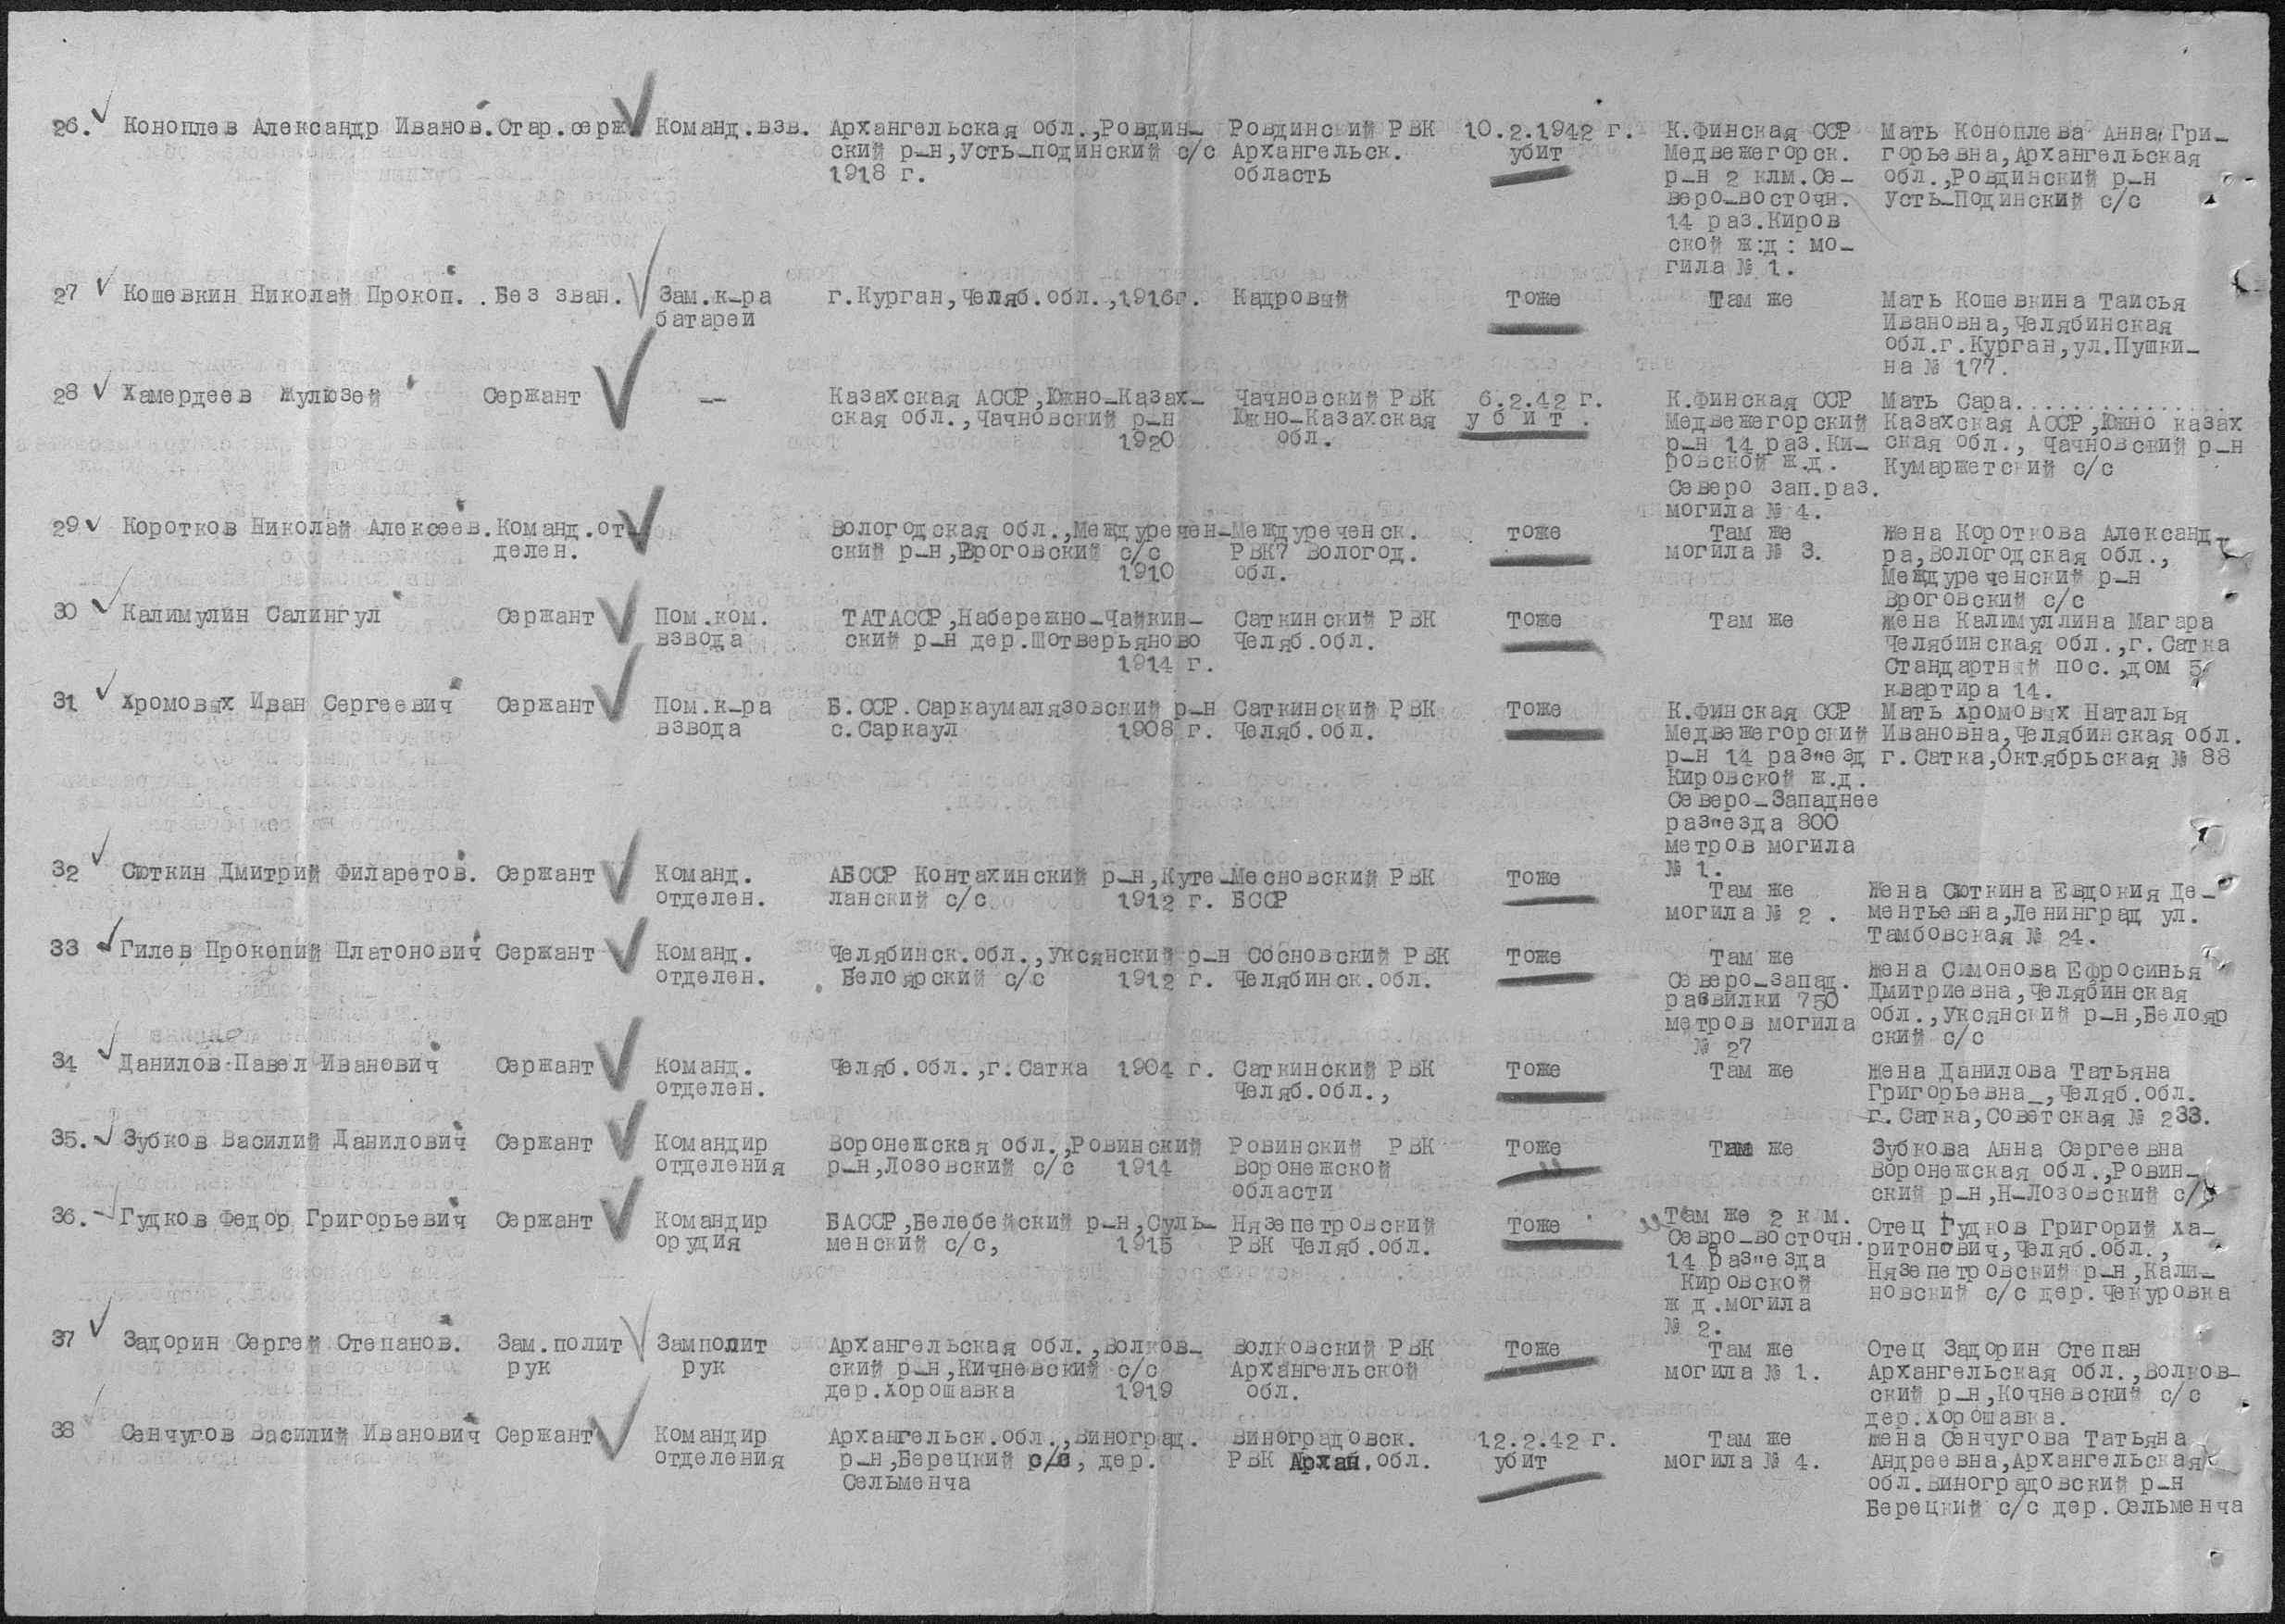 26. Коноплев Александр Иванов. Стар.серж. Команд.взв. Архангельская обл.,Ровдин- Ровдинский РВК 10.2.1942 г. К.Финская ССР Мать Коноплева Анна Гри-
ский р-н,Усть-подинский с/с Архангельск. убит Медвежегорск. горьевна,Архангельская
1918 г. область р-н 2 клм.Се- обл.,Ровдинский р-н
веро-восточн. Усть-Подинский с/с
14 раз.Киров
ской ж:д: мо-
гила № 1.
27 Кошевкин Николай Прокоп. . Без зван. Зам.к-ра г.Курган,Челяб.обл.,1916г. Кадровый Тоже Там же Мать Кошевкина Таисья
батареи Ивановна,Челябинская
обл.г.Курган,ул.Пушки-
на № 177.
28 Хамердеев Жулюзей Сержант -- Казахская АССР,Южно-Казах- Чачновский РВК 6.2.42 г. К.Финская ССР Мать Сара...............
ская обл.,Чачновский р-н Южно-Казахская у б и т . Медвежегорский Казахская АССР,Южно казах
1920 обл. р-н 14 раз.Ки- ская обл., Чачновский р-н
ровской ж.д. Кумаржетский с/с
Северо зап.раз.
могила № 4.
29 Коротков Николай Алексеев. Команд.от Вологодская обл.,Междуречен- Междуреченск. тоже Там же Жена Короткова Александ-
делен. ский р-н,Вроговский с/с РВК7 Вологод. могила № 3. ра,Вологодская обл.,
1910 обл. Междуреченский р-н
Вроговский с/с
30 Калимулин Салингул Сержант Пом.ком. ТАТАССР,Набережно-Чайкин- Саткинский РВК Тоже Там же Жена Калимуллина Магара
взвода ский р-н дер.Шотверьяново Челяб.обл. Челябинская обл.,г.Сатка
1914 г. Стандартный пос.,дом 5
квартира 14.
31 Хромовых Иван Сергеевич Сержант Пом.к-ра Б.ССР.Саркаумалязовский р-н Саткинский РВК Тоже К.Финская ССР Мать Хромовых Наталья
взвода с.Саркаул 1908 г. Челяб.обл. Медвежегорский Ивановна,Челябинская обл.
р-н 14 раз"езд г.Сатка,Октябрьская № 88
Кировской ж.д.
Северо-Западнее
раз"езда 800
метров могила
№ 1.
32 Сюткин Дмитрий Филаретов. Сержант Команд. АБССР Контахинский р-н,Куте- Месновский РВК Тоже Там же Жена Сюткина Евдокия Де-
отделен. ланский с/с 1912 г. БССР могила № 2 . ментьевна,Ленинград ул.
Тамбовская № 24.
33 Гилев Прокопий Платонович Сержант Команд. Челябинск.обл.,Уксянский р-н Сосновский РВК Тоже Там же Жена Симонова Ефросинья
отделен. Белоярский с/с 1912 г. Челябинск.обл. Северо-запад. Дмитриевна,Челябинская
развилки 750 обл.,Уксянский р-н,Белояр
метров могила ский с/с
№ 27
34 Данилов Павел Иванович Сержант Команд. Челяб.обл.,г.Сатка 1904 г. Саткинский РВК Тоже Там же Жена Данилова Татьяна
отделен. Челяб.обл., Григорьевна_,Челяб.обл.
г.Сатка,Советская № 233.
35. Зубков Василий Данилович Сержант Командир Воронежская обл.,Ровинский Ровинский РВК Тоже Там же Зубкова Анна Сергеевна
отделения р-н,Лозовский с/с 1914 Воронежской Воронежская обл.,Ровин-
области ский р-н,Н-Лозовский с/с
36. Гудков Федор Григорьевич Сержант Командир БАССР,Белебейский р-н,Суль- Нязепетровский Тоже Там же 2 км. Отец Гудков Григорий Ха-
орудия менский с/с, 1915 РВК Челяб.обл. Севро-восточн. ритонович,Челяб.обл.,
14 раз"езда Нязепетровский р-н,Кали-
Кировской новский с/с дер.Чекуровка
ж д.могила
№ 2.
37 Задорин Сергей Степанов. Зам.полит Замполит Архангельская обл.,Волков- Волковский РВК Тоже Там же Отец Задорин Степан
рук рук ский р-н,Кичневский с/с Архангельской могила № 1. Архангельская обл.,Волков-
дер.Хорошавка 1919 обл. ский р-н,Кочневский с/с
дер.Хорошавка.
38 Сенчугов Василий Иванович Сержант Командир Архангельск.обл.,Виноград. Виноградовск. 12.2.42 г. Там же Жена Сенчугова Татьяна
отделения р-н,Берецкий с/с, дер. РВК Архан.обл. убит могила № 4. Андреевна,Архангельская
Сельменча обл.Виноградовский р-н
Берецкий с/с дер.Сельменча